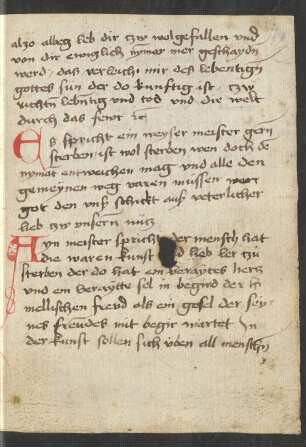 also albeg leb dir czw wolgefallen vnd
von dir ewiglich nymer mer geschaydn
werd / das verleich mir des lebentign
gottes sun der do kunftig ist czw
richtn lebntig vnd tod vnd die welt
durch das fewr ꝛc
Es spricht ein weyser meister gern
sterben ist wol sterben wen doch de
nymat entweichen mag vnd alle den
gemeynen weg varen mussen
got den vnß schickt auß veterlicher
lieb czw vnsern nucz
Ayn meister spricht der mensch hat
die waren kunst lieb ler czu
sterben der do hat ein beraytes hercz
vnd ein beraytte sel in begird der hi
mellischen frewd als ein gesel der sey
nes frewdes mit begir wartet In
der kunst sollen sich vben all menschn